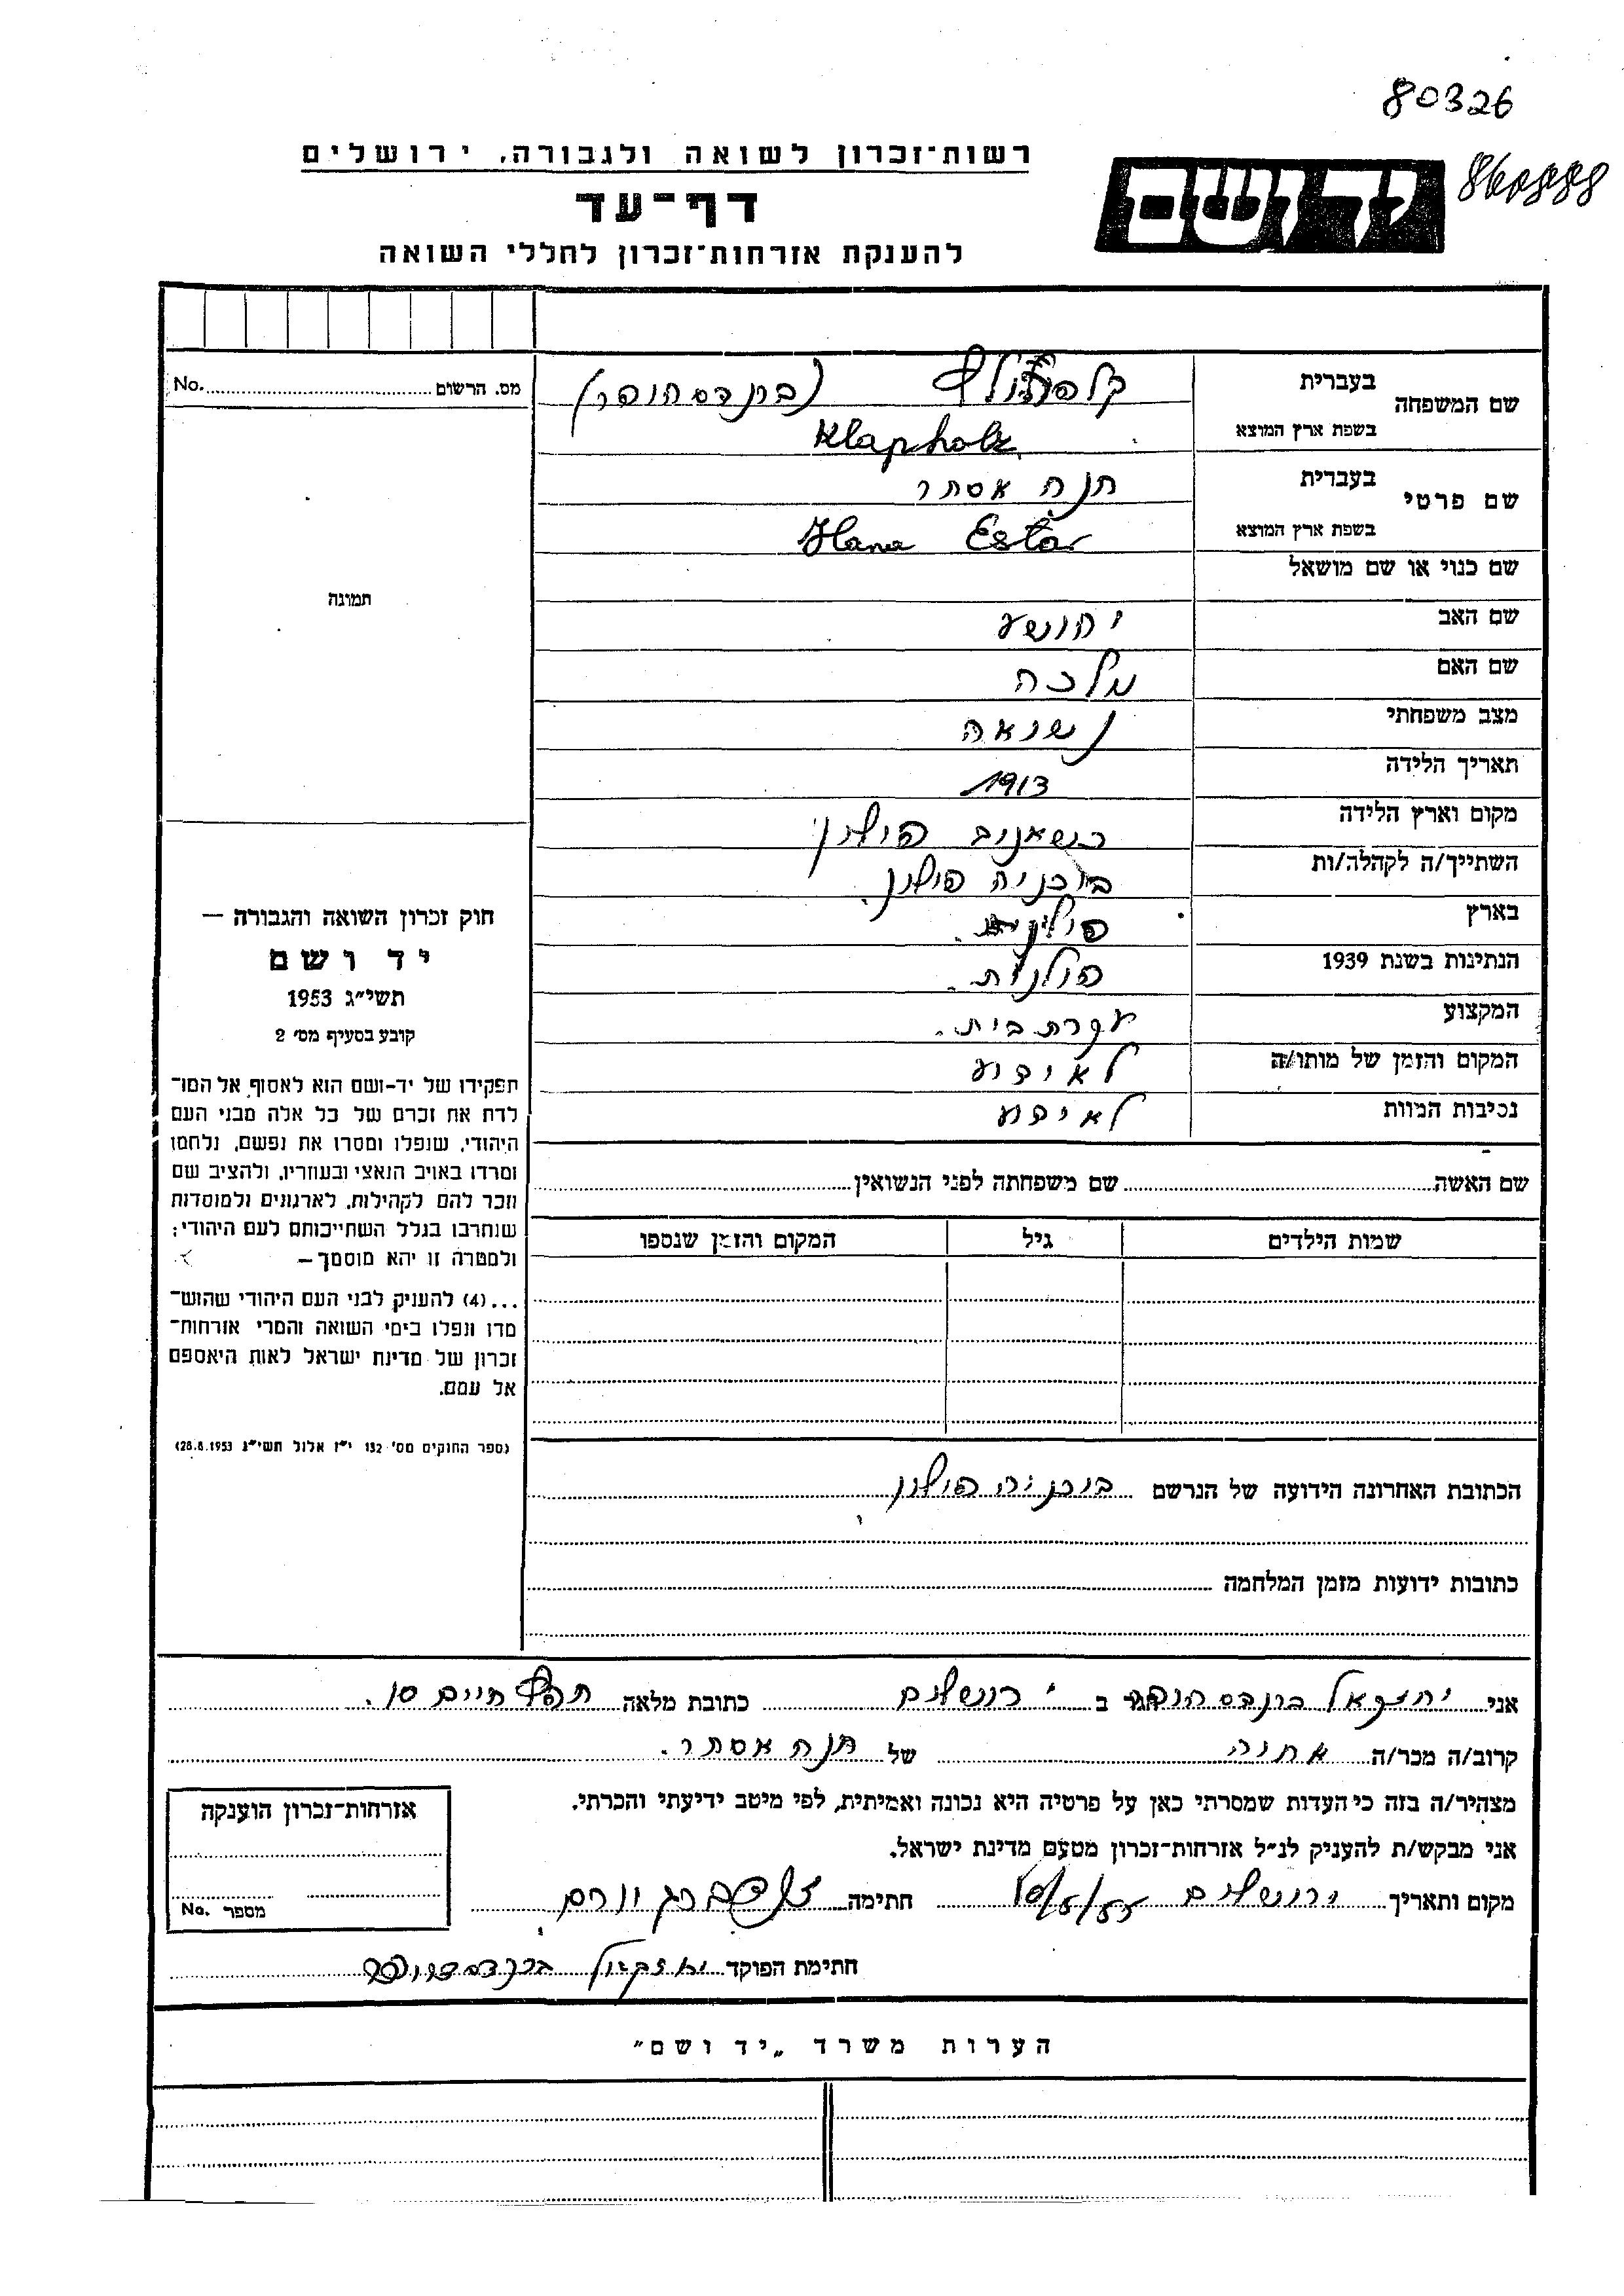 80326
860888
יד ושם
רשות־זכרון לשואה ולגבורה, ירושלים
דף־עד
להענקת אזרחות־זכרון לחללי השואה
מס. הרשום No.
תמונה
שם המשפחה
בעברית (ברנדסהופר)
בשפת ארץ המוצא Klapholz
שם פרטי
בעברית חנה אסתר
בשפת ארץ המוצא Hana Ester
שם כנוי או שם מושאל
שם האב יהושע
שם האם מלכה
מצב משפחתי נשואה
תאריך הלידה 1913
מקום וארץ הלידה כשאנוב פולין
השתייך/ה לקהלה/ות בוכניה פולין.
בארץ
הנתינות בשנת 1939 פולנית.
המקצוע עקרת בית.
המקום והזמן של מותו/ה לא ידוע
נסיבות המוות לא ידוע
שם האשה שם משפחתה לפני הנשואין
שמות הילדים גיל המקום והזמן שנספו
חוק זכרון השואה והגבורה —
יד ושם
תשי״ג 1953
קובע בסעיף מס׳ 2
תפקידו של יד-ושם הוא לאסוף אל המו־
לדת את זכרם של כל אלה מבני העם
היהודי, שנפלו ומסרו את נפשם, נלחמו
ומרדו באויב הנאצי ובעוזריו, ולהציב שם
וזכר להם לקהילות, לארגונים ולמוסדות
שנחרבו בגלל השתייכותם לעם היהודי;
ולמטרה זו יהא מוסמך —
...(4) להעניק לבני העם היהודי שהוש־
מדו ונפלו בימי השואה והמרי אזרחות־
זכרון של מדינת ישראל לאות היאספם
אל עמם.
(ספר החוקים מס׳ 132 י״ז אלול תשי״ג 28.8.1953)
הכתובת האחרונה הידועה של הנרשם בוכניה פולין
כתובות ידועות מזמן המלחמה
אני יחזקאל ברנדסהופר הגר ב ירושלים כתובת מלאה חיים 10.
קרוב/ה מכר/ה אחיה של חנה אסתר.
מצהיר/ה בזה כי העדות שמסרתי כאן על פרטיה היא נכונה ואמיתית, לפי מיטב ידיעתי והכרתי.
אני מבקש/ת להעניק לנ״ל אזרחות־זכרון מטעם מדינת ישראל.
מקום ותאריך ירושלים חתימה
חתימת הפוקד יחזקאל ברנדסהופר
אזרחות־זכרון הוענקה
מספר No.
הערות משרד „יד ושם״